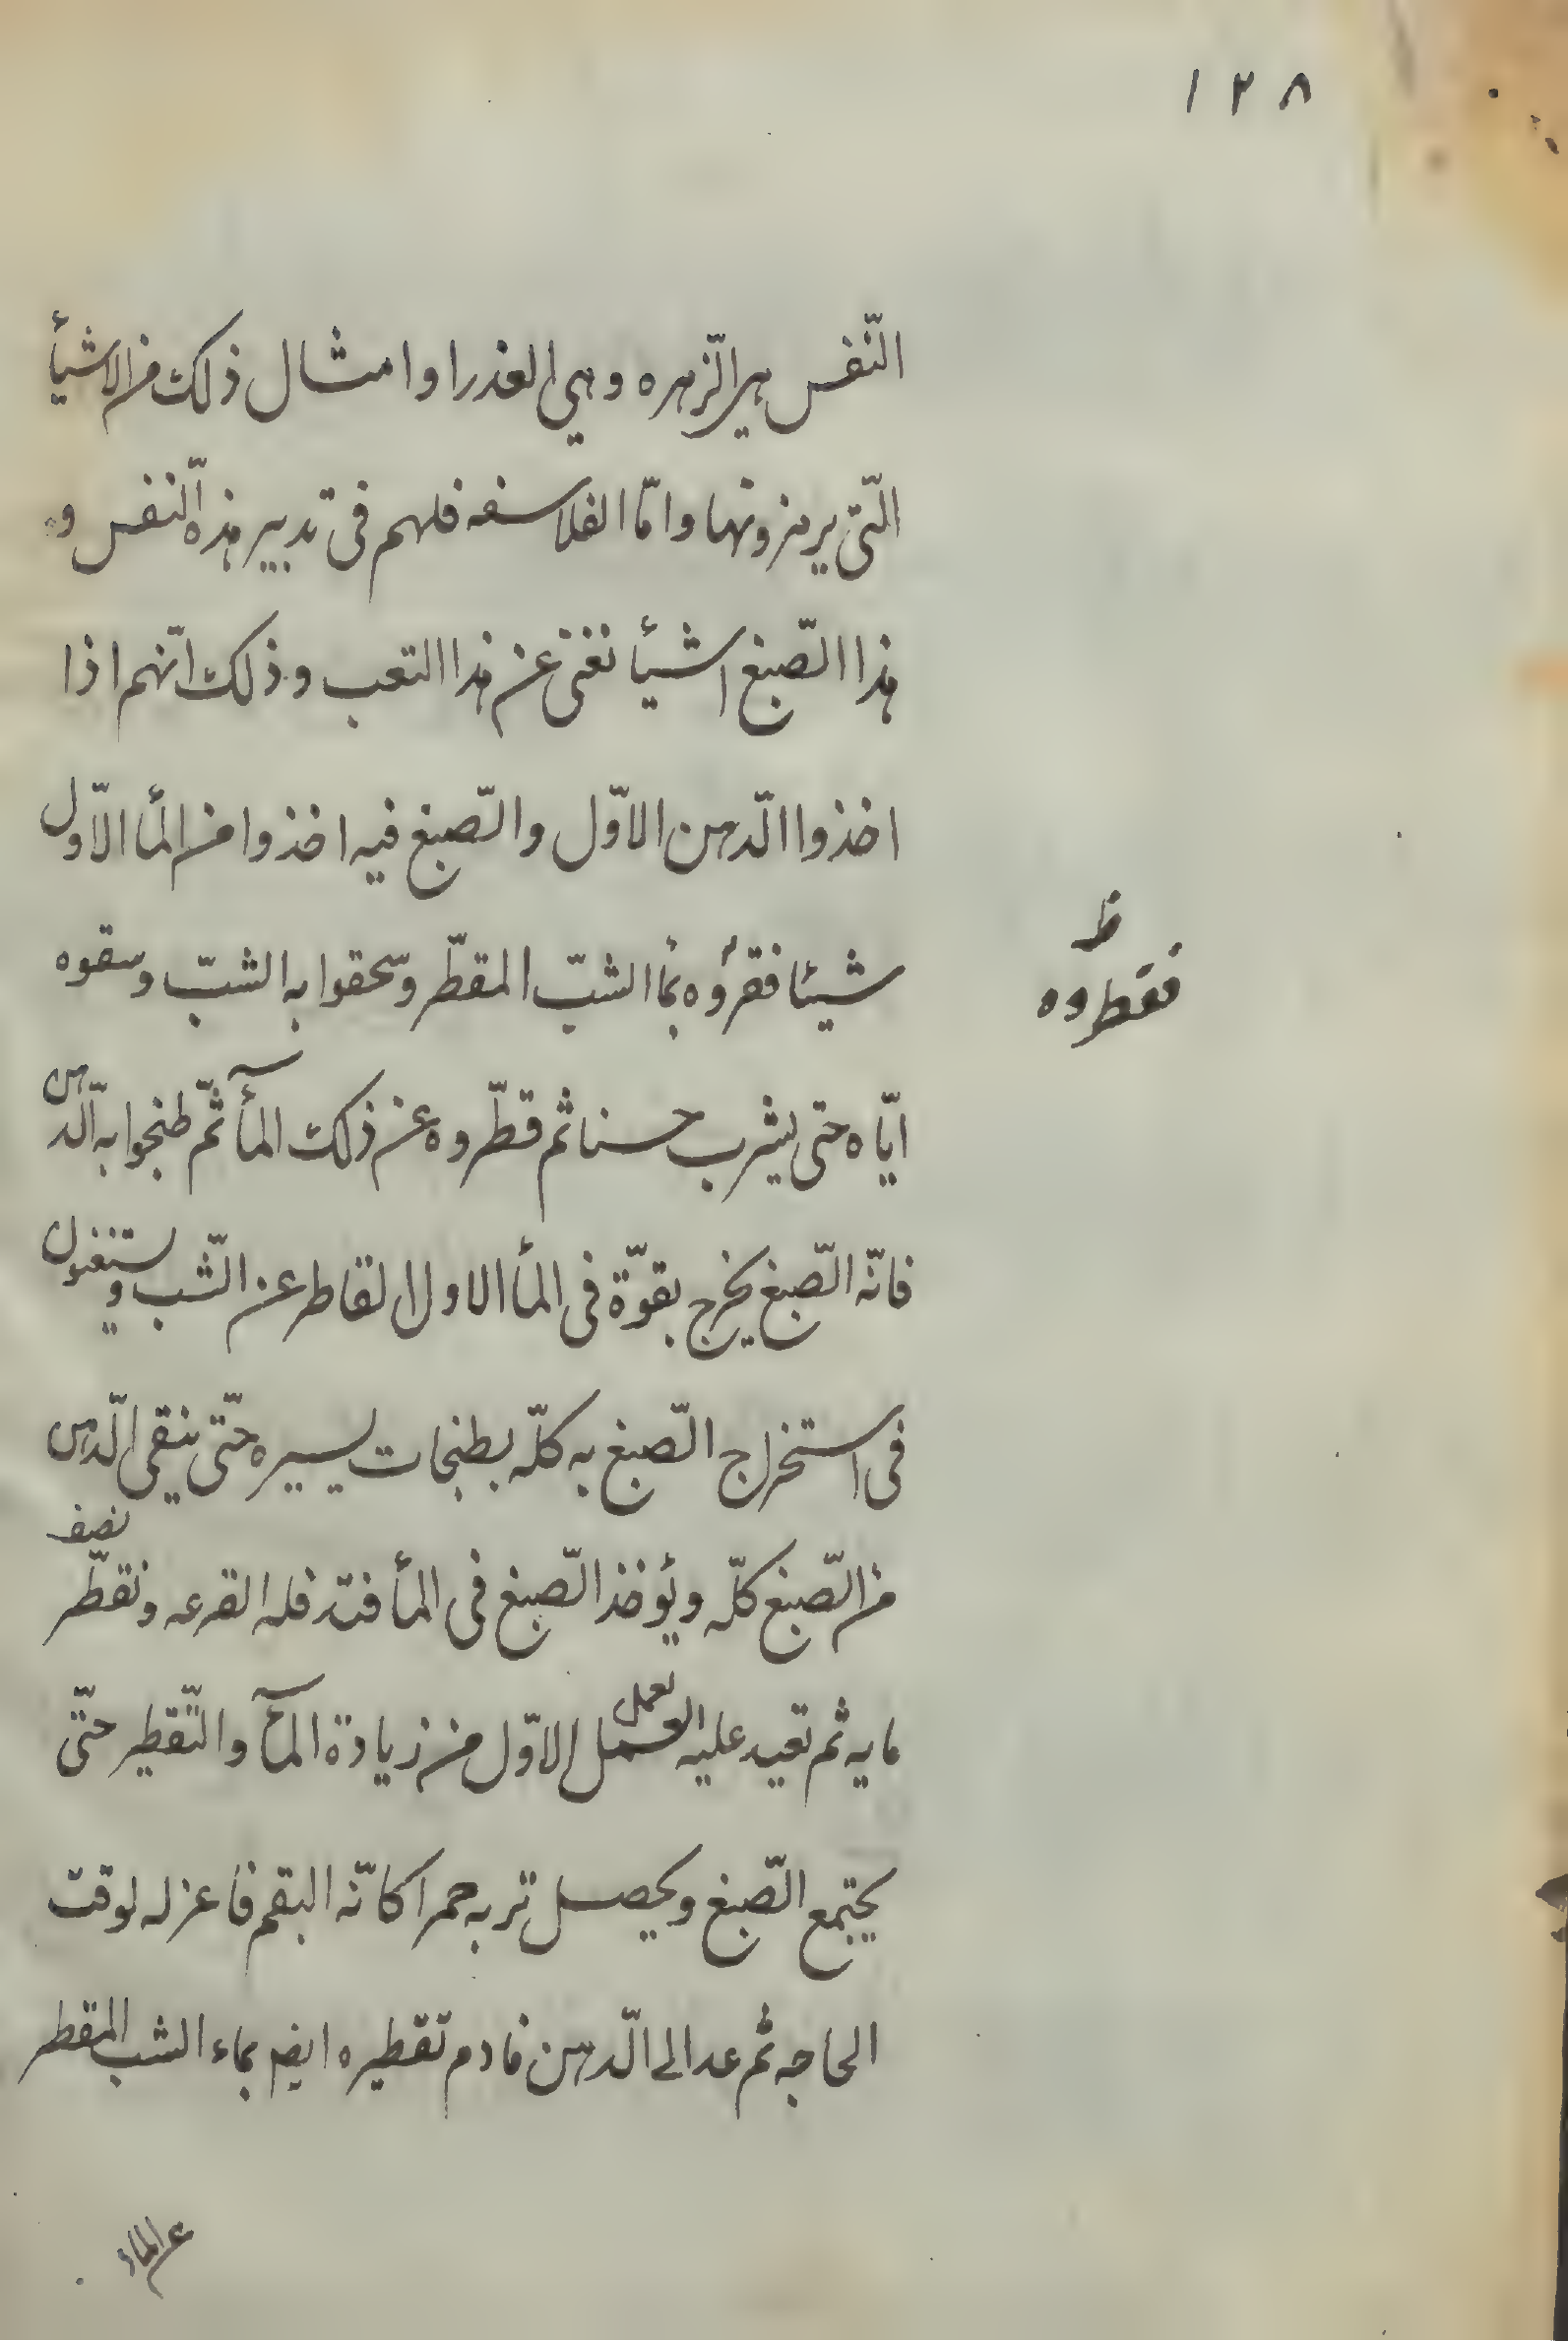 ١٢٨
النّفس هى الزّهره وهى العذرا وامثال ذلك من الاشيأ
الّتى يرمزونها وامّا الفلاسفه فلهم فى تدبير هذه النّفس و
هذا الصّبغ اشيأ تغنى عن هذا التعب وذلك انّهم اذا
اخذوا الدّهن الاوّل والصّبغ فيه اخذوا من المأ الاوّل
شيئا فقرؤه بمأ الشبّ المقطّر وسحقوا به الشبّ وسقوه
ظ
فقطروه
ايّاه حتى يشرب حسنا ثم قطّروه عن ذلك المآ ثمّ طبخوا به الدّهن
فانّه الصّبغ يخرج بقوّة فى المأ الاول القاطر عن الشّب ويستغنون
فى استخراج الصّبغ به كلّه بطبخات يسيره حتّى ينقى الدّهن
من الصّبغ كلّه ويؤخذ الصّبغ فى المأ فتدخله القرعه وتقطّر نصف
مايه ثم تعيد عليه العمل الاوّل من زيادة المآ والتّقطير حتّى
يجتمع الصّبغ ويحصل تربه حمرا كانّه البقم فاعزله لوقت
الحاجه ثم عد الى الدّهن فادم تقطيره ايضا بماء الشب المقطر
عن الماء